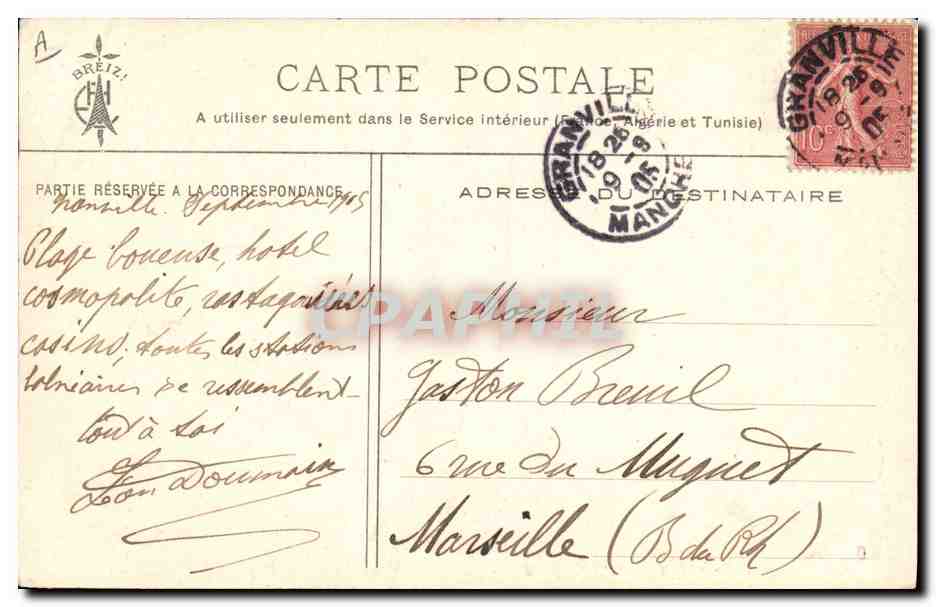 A
BREIZ!
CARTE POSTALE
A utiliser seulement dans le Service intérieur (France, Algérie et Tunisie)
GRANVILLE
18 25
9 -9
05
10c
GRANVILLE
18 25
9 -9
05
MANCHE
PARTIE RÉSERVÉE A LA CORRESPONDANCE
ADRESSE DU DESTINATAIRE
Granville. Septembre 1905
Plage boueuse, hotel
cosmopolite, rastaquouères
casino; toutes les stations
balnéaires se ressemblent
tout à toi
Léon Doumain
Monsieur
Gaston Breuil
6 rue du Muguet
Marseille (B du Rh)
CPAPHIL